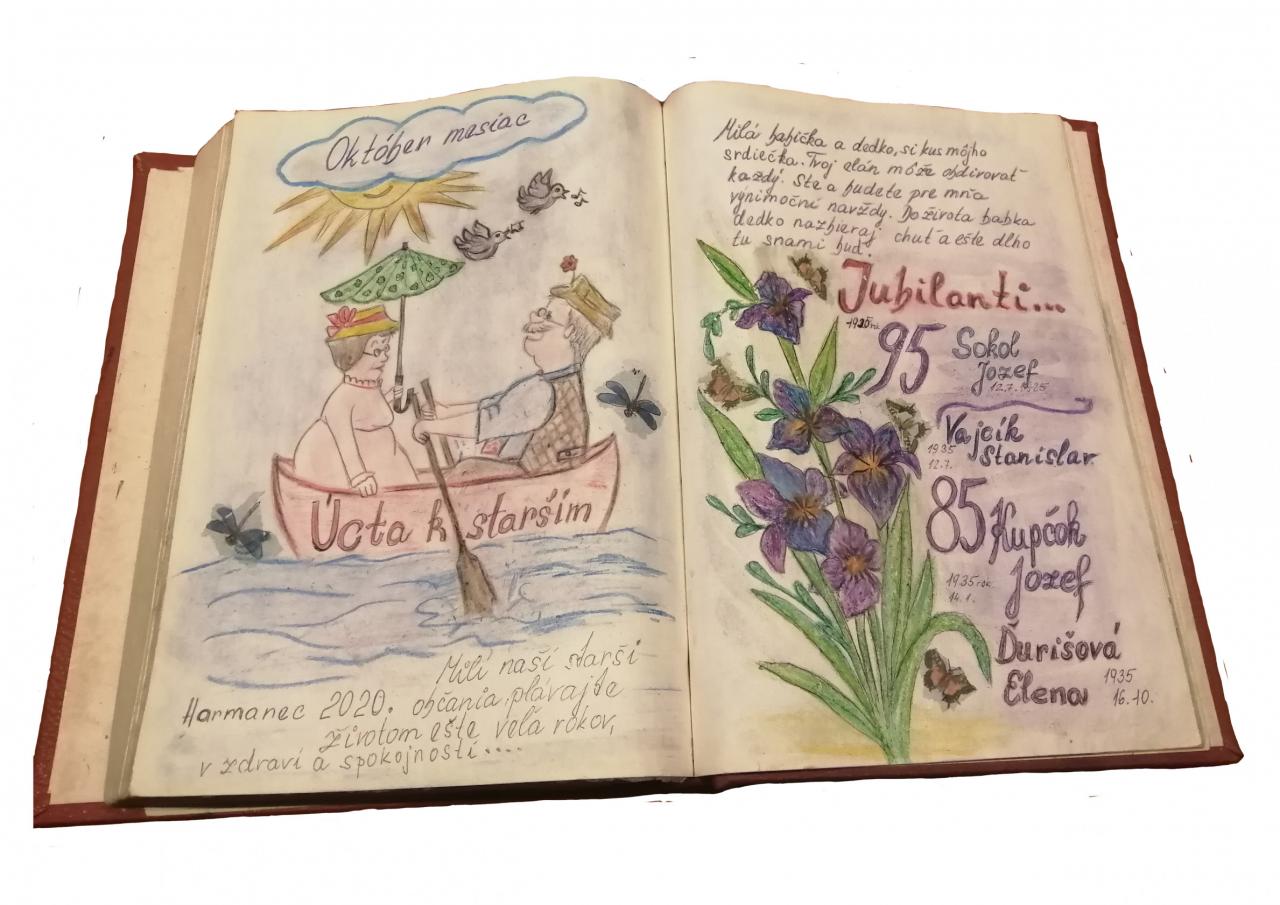 Október mesiac
Úcta k starším
Milí naší starší
Harmanec 2020. občania, plávajte
životom ešte veľa rokov,
v zdraví a spokojnosti....
Milá babička a dedko, si kus môjho
srdiečka. Tvoj elán môže obdivovať
každý. Ste a budete pre mňa
výnimoční navždy. Do života babka
dedko nazbieraj chuť a ešte dlho
tu snami buď.
Jubilanti...
95 Sokol
Jozef
12.7.1925
Vajcík
1935 Stanislav
12.7.
85 Kupčok
Jozef
1935 rok
14.1.
Ďurišová
Elena 1935
16.10.